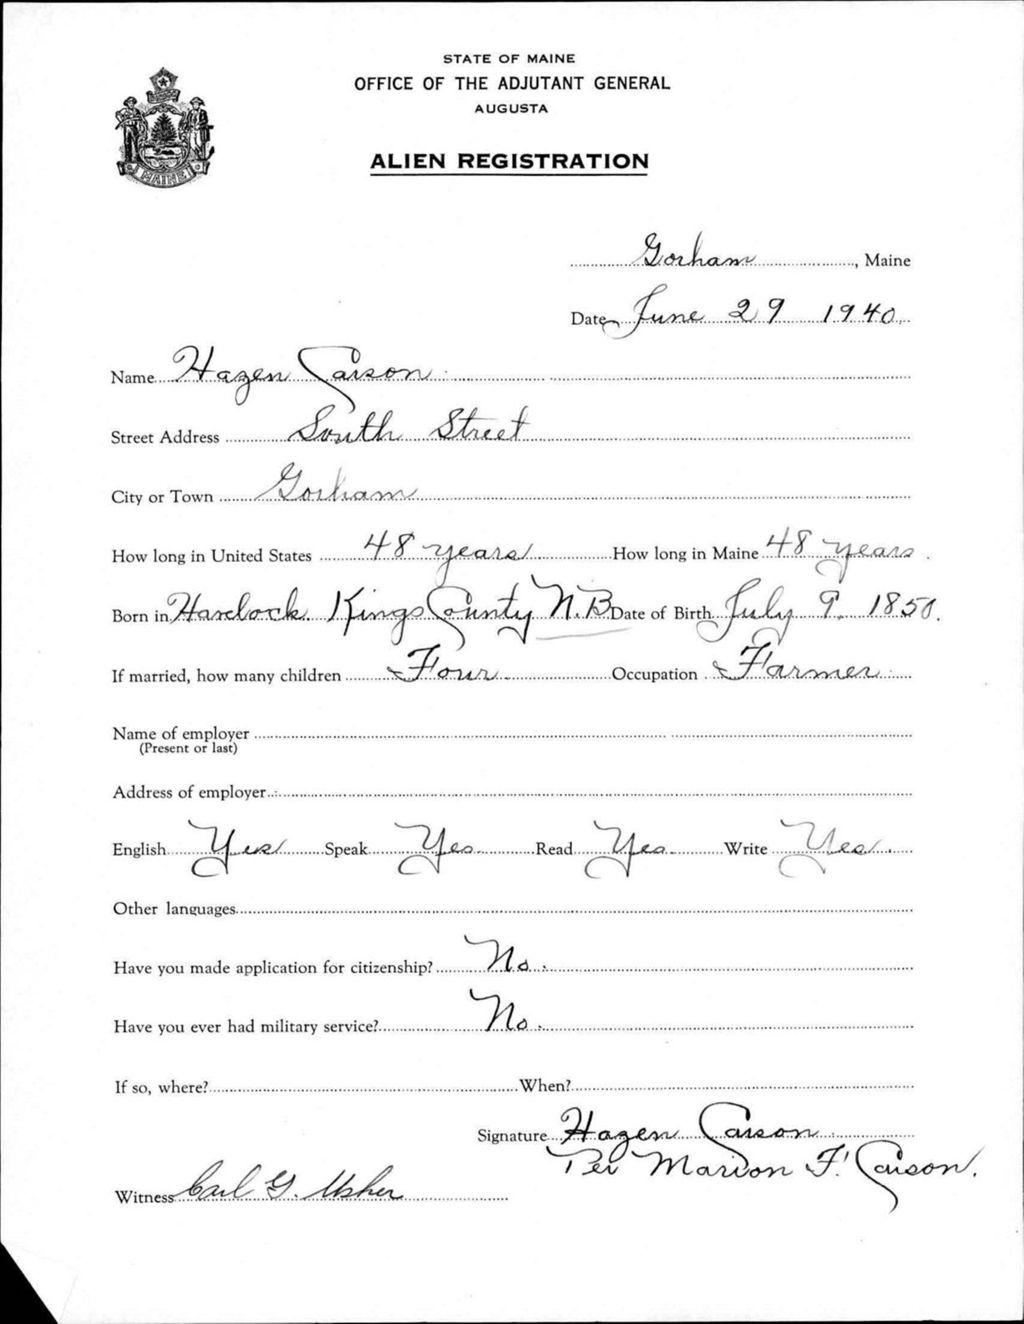 STATE OF MAINE
OFFICE OF THE ADJUTANT GENERAL
AUGUSTA
ALIEN REGISTRATION
MAINE
Gorham, Maine
Date June 29 1940
Name Hazen Carson
Street Address South Street
City or Town Gorham
How long in United States 48 years How long in Maine 48 years.
Born in Havelock Kings County N.B. Date of Birth July 9. 1850.
If married, how many children Four Occupation Farmer
Name of employer
(Present or last)
Address of employer
English Yes Speak Yes Read Yes Write Yes
Other languages
Have you made application for citizenship? No.
Have you ever had military service? No.
If so, where? When?
Signature Hazen Carson
Per Marion F. Carson.
Witness Carl G. Usher